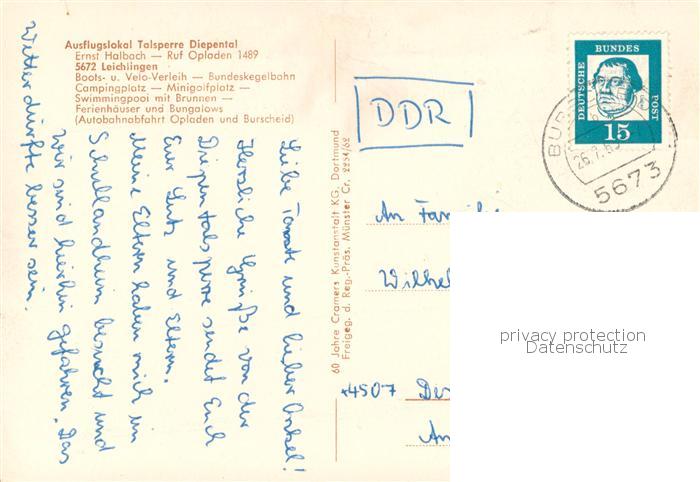 Ausflugslokal Talsperre Diepental
Ernst Halbach — Ruf Opladen 1489
5672 Leichlingen
Boots- u. Velo-Verleih — Bundeskegelbahn
Campingplatz — Minigolfplatz —
Swimmingpool mit Brunnen —
Ferienhäuser und Bungalows
(Autobahnabfahrt Opladen und Burscheid)
Liebe Tante und lieber Onkel!
Herzliche Grüße von der
Diepentalsperre sendet Euch
Euer Lutz und Eltern.
Meine Eltern haben mich im
Schullandheim besucht und
wir sind hierhin gefahren. Das
Wetter dürfte besser sein.
60 Jahre Cramers Kunstanstalt KG, Dortmund
Freigeg. d. Reg.-Präs. Münster Cr. 2234/62
DDR
DEUTSCHE
BUNDES
POST
15
5673
An Familie
Wilhel
4507 Des
An
privacy protection
Datenschutz